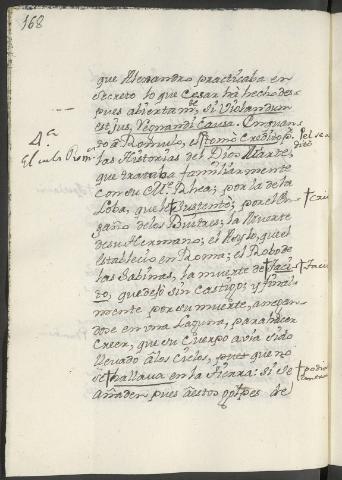 168
que Alexandro practicaba en
secreto lo que Cesar há hecho des=
pues abiertamte, si violandum
est jus, Regnandi Causa. En quan=
4.a
do à Romulo, el tomò Credito pr
las Historias del Dios Marte;
que trataba familiarmente
con su Me Rhea; por la de la
Loba, que le † sustentò; por el En=
gaño de los Buitres; la Muerte
de su Hermano; el Asylo, que el
estableciò en Roma; el Robo de
las Sabinas, la muerte de † Taci=
do, que dejò sin Castigo; y final
mente por su muerte, anegan
dose en una Laguna, para hacer
Creer, que su Cuerpo avia sido
llevado à los Cielos, que no
se † hallava en la tierra: si se
añaden pues à estos golpes de